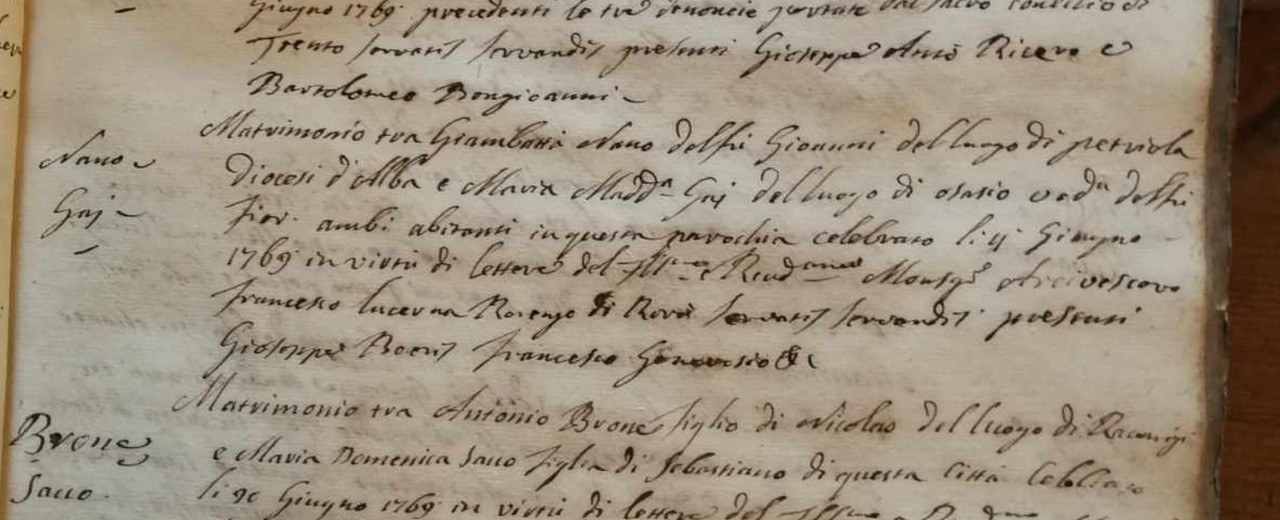 Giugno 1769 precedenti le tre denoncie portate dal sacro concilio di
Trento servatis servandis presenti Gioseppe Anto Ricero e
Bartolomeo Bongioanni
Nano
Gaj
Matrimonio tra Giambatta Nano del fu Gioanni del luogo di petriola
Diocesi d'Alba e Maria Madda Gaj del luogo di osasio veda del fu
fior. ambi abitanti in questa parochia celebrato li 4 Giugno
1769 in virtù di lettere del Revdmo Monsgr Arcivescovo
francesco lucerna Rorengo di Rorà servatis servandis presenti
Gioseppe Boeris francesco Genovesio
Brone
Sacco
Matrimonio tra Antonio Brone figlio di Nicolao del luogo di Racconigi
e Maria Domenica Sacco figlia di Sebastiano di questa Città
li 20 Giugno 1769 in virtù di lettere del